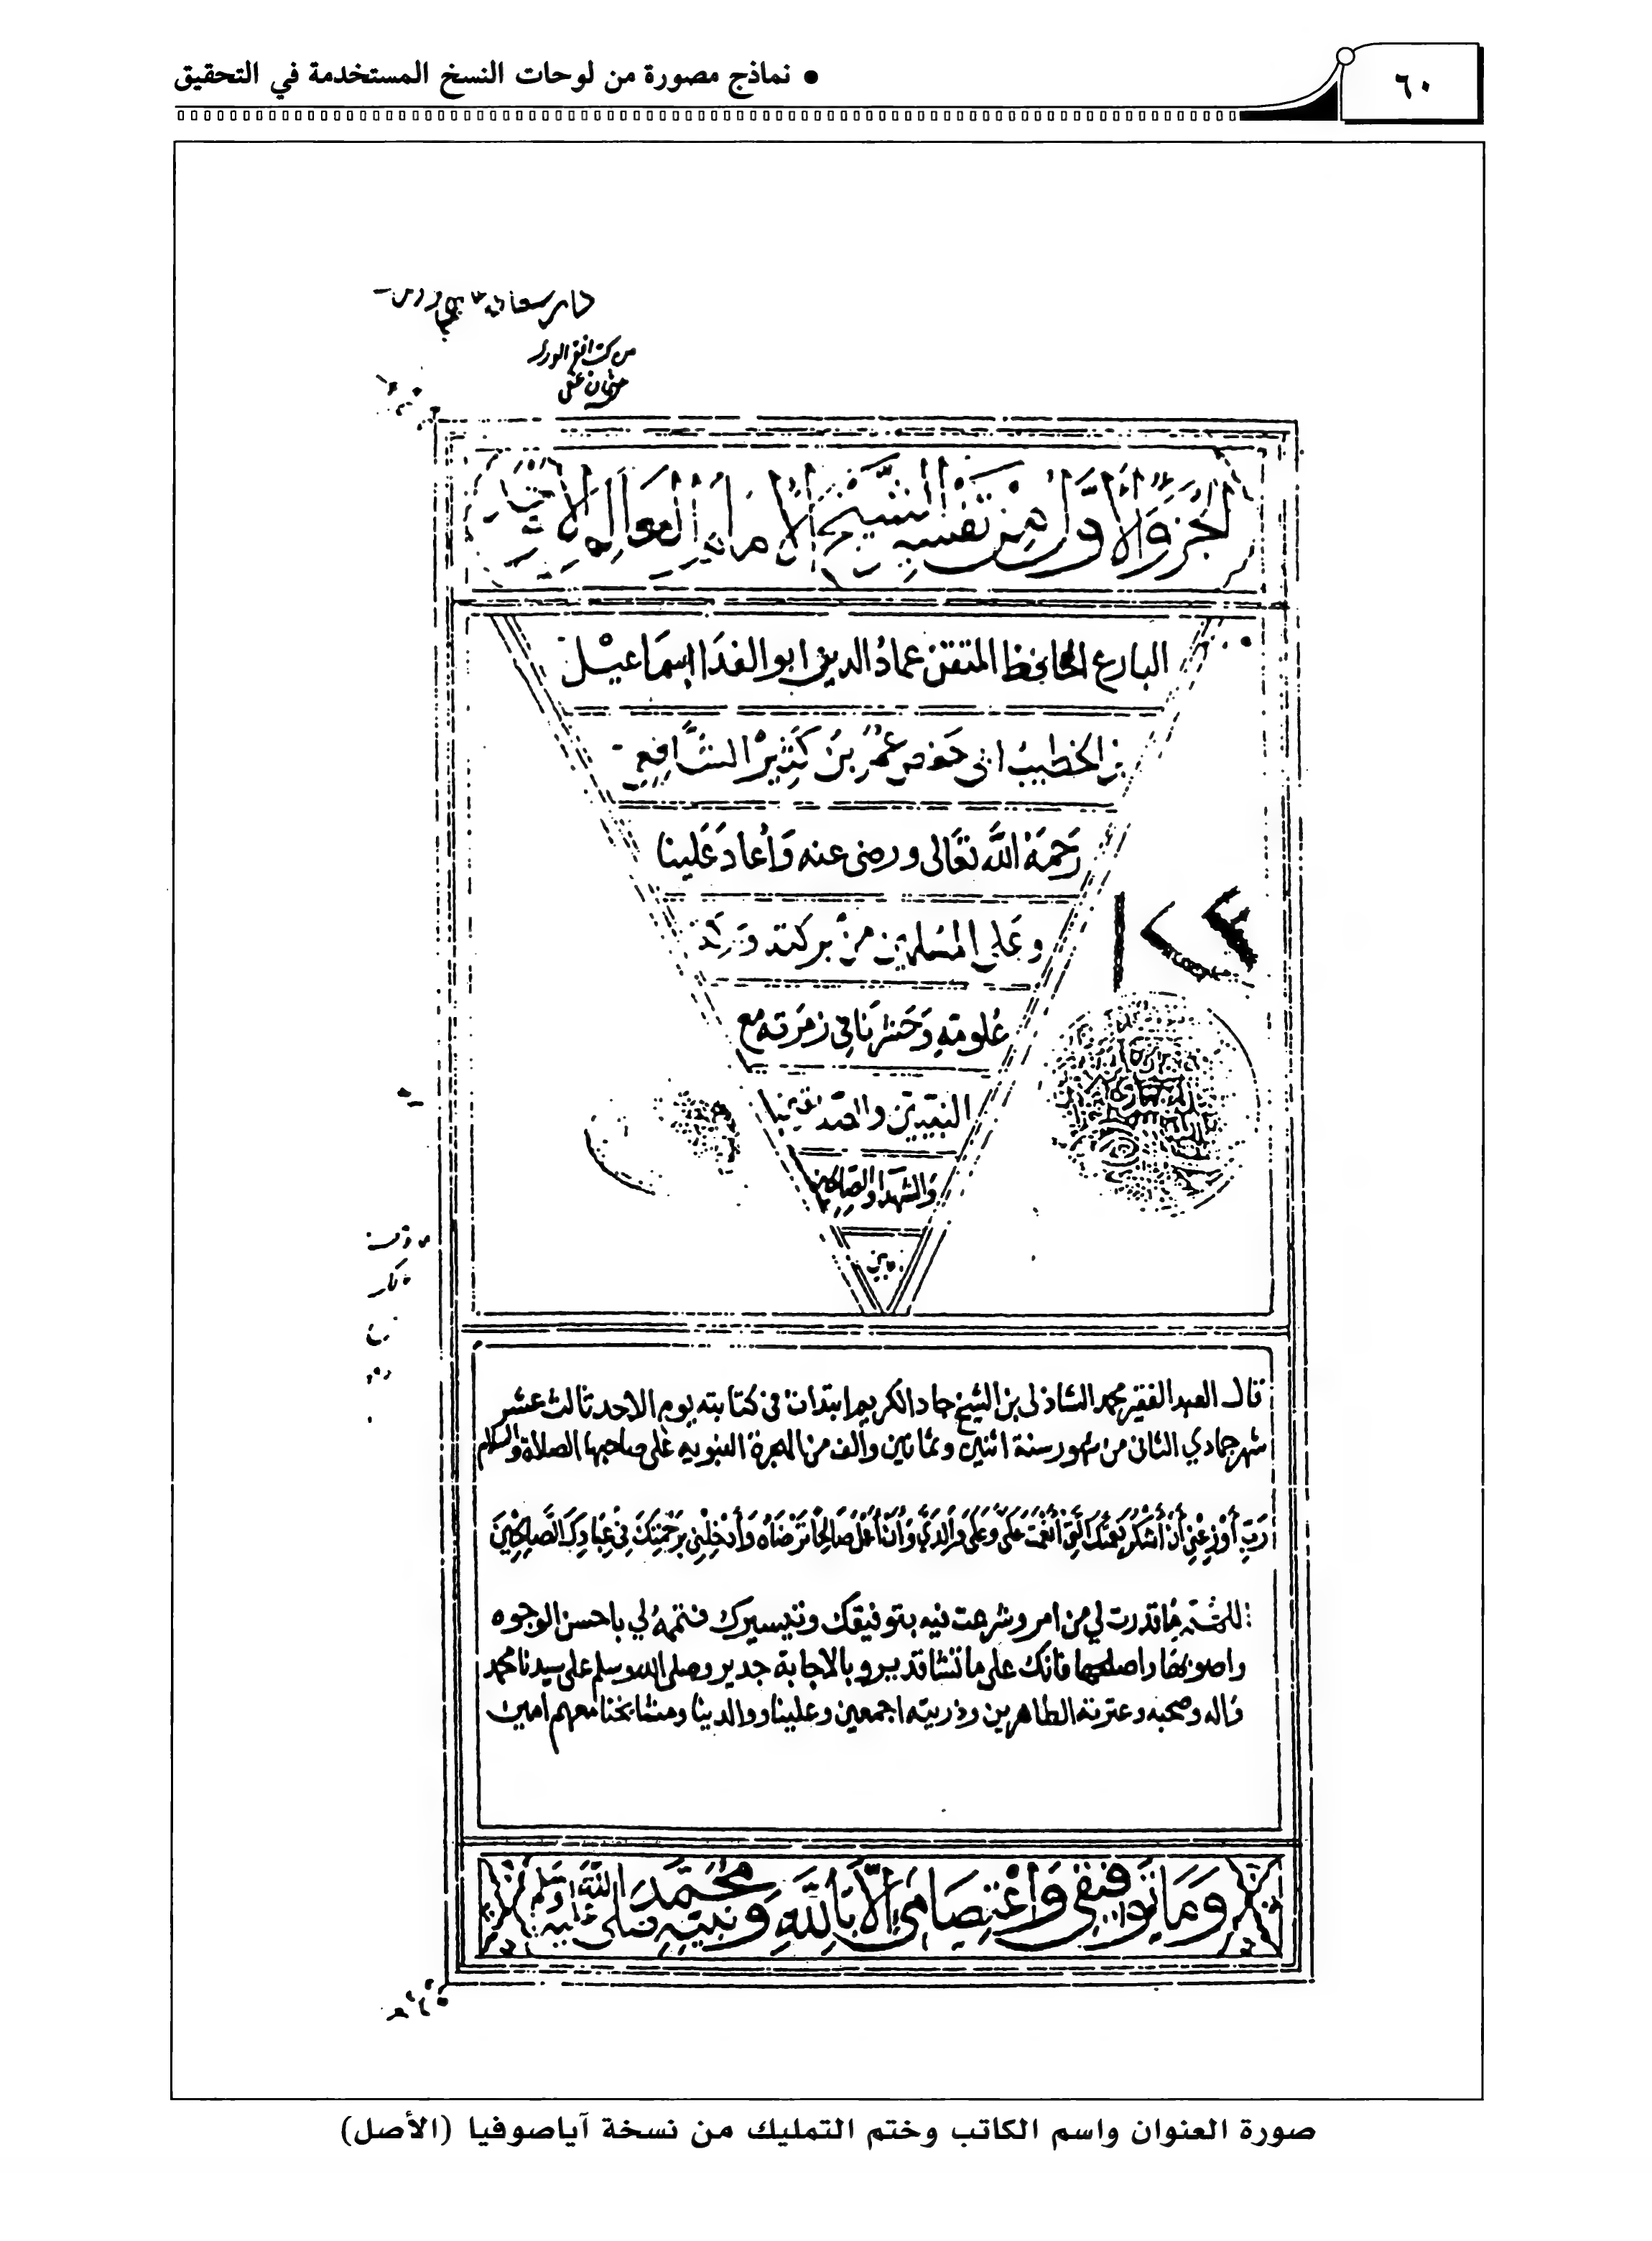 ٦٠
● نماذج مصورة من لوحات النسخ المستخدمة في التحقيق
الجزؤ الاول من تفسير الشيخ الامام العالم
البارع الحافظ المتقن عماد الدين ابو الفدا اسماعيل
بن الخطيب ابى حفص عمر بن كثير الشافعي
رحمة الله تعالى ورضى عنه وأعاد علينا
وعلى المسلمين من بركته
علومه وحشرنا في زمرته مع
النبيين و
والشهدا والصالحين
قال العبد الفقير محمد الشاذلى بن الشيخ جاد الكريم ابتدات فى كتابته يوم الاحد ثالث عشر
شهر جمادي الثانى من شهور سنة اثنين وثمانين والف من الهجرة النبويه على صاحبها الصلاة والسلام
رَبِّ أَوْزِعْنِي أَنْ أَشْكُرَ نِعْمَتَكَ الَّتِي أَنْعَمْتَ عَلَيَّ وَعَلَى وَالِدَيَّ وَأَنْ أَعْمَلَ صَالِحًا تَرْضَاهُ وَأَدْخِلْنِي بِرَحْمَتِكَ فِي عِبَادِكَ الصَّالِحِينَ
قدرت لي من امر وشرعت فيه بتوفيقك وتيسيرك فتممه لي باحسن الوجوه
واصوبها واصلحها فانك على ما تشا قدير وبالاجابة جدير وصلى الله وسلم على سيدنا محمد
واله وصحبه وعترته الطاهرين وذريته اجمعين وعلينا ووالدينا ومشايخنا معهم امين
وَمَا توفيقي وَاعْتِصَامِي إلّا بَاللهِ وَنبيّه محمد صلى الله عليه وسلم
صورة العنوان واسم الكاتب وختم التمليك من نسخة آياصوفيا (الأصل)